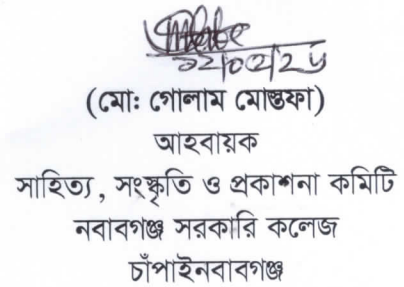 (মো: গোলাম মোস্তফা)
আহবায়ক
সাহিত্য, সংস্কৃতি ও প্রকাশনা কমিটি
নবাবগঞ্জ সরকারি কলেজ
চাঁপাইনবাবগঞ্জ